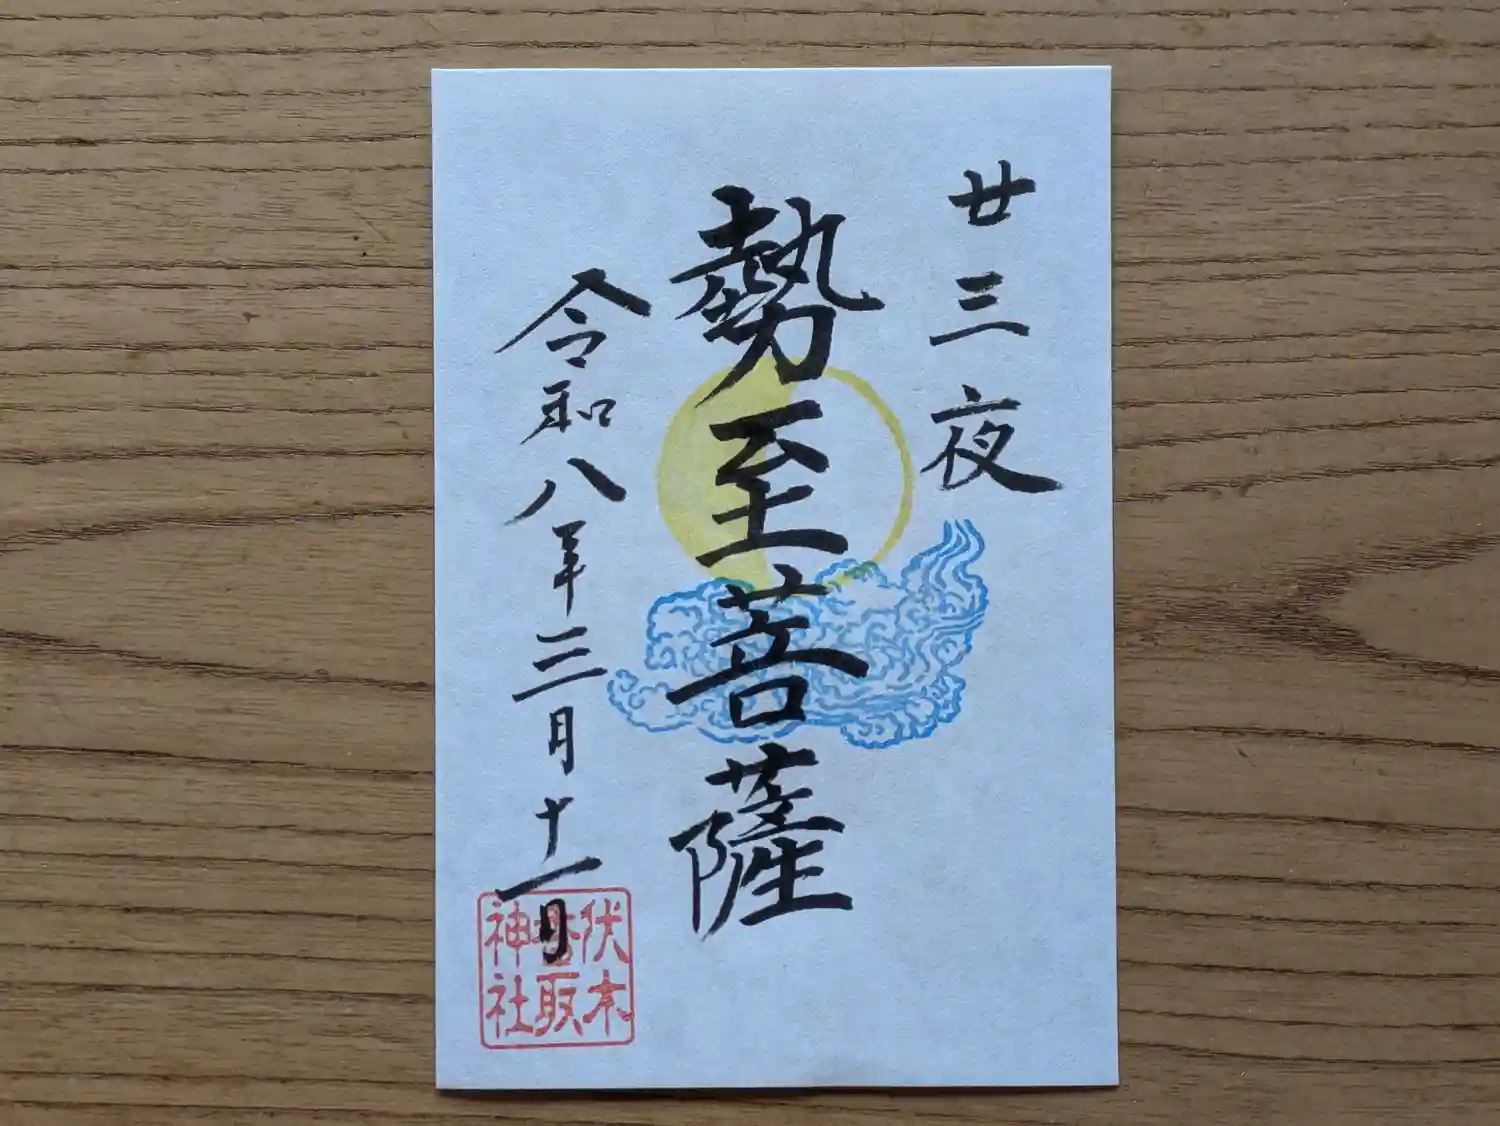 廿三夜
勢至菩薩
令和八年三月十一日
伏木
香取
神社